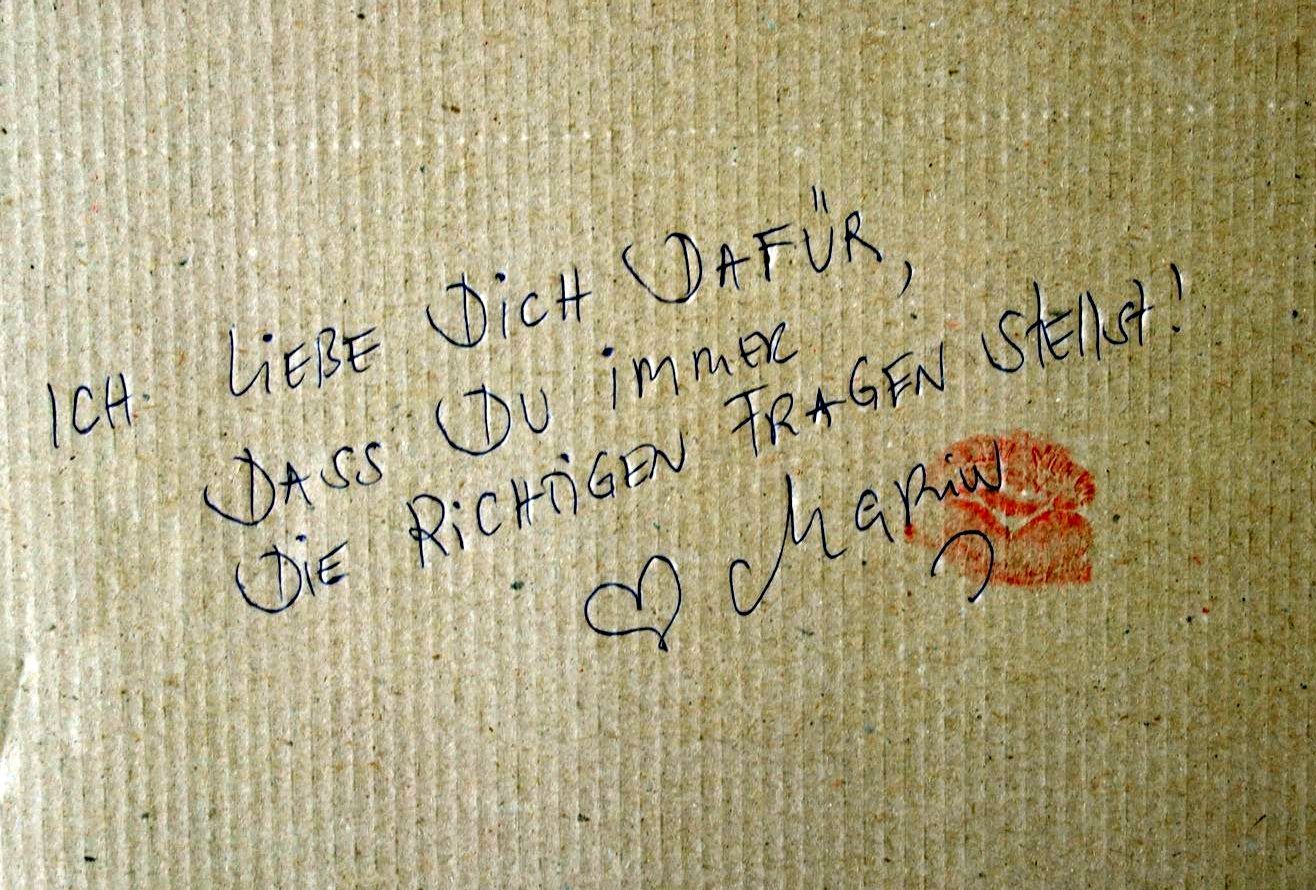 ICH LIEBE DICH DAFÜR,
DASS DU IMMER
DIE RICHTIGEN FRAGEN STELLST!